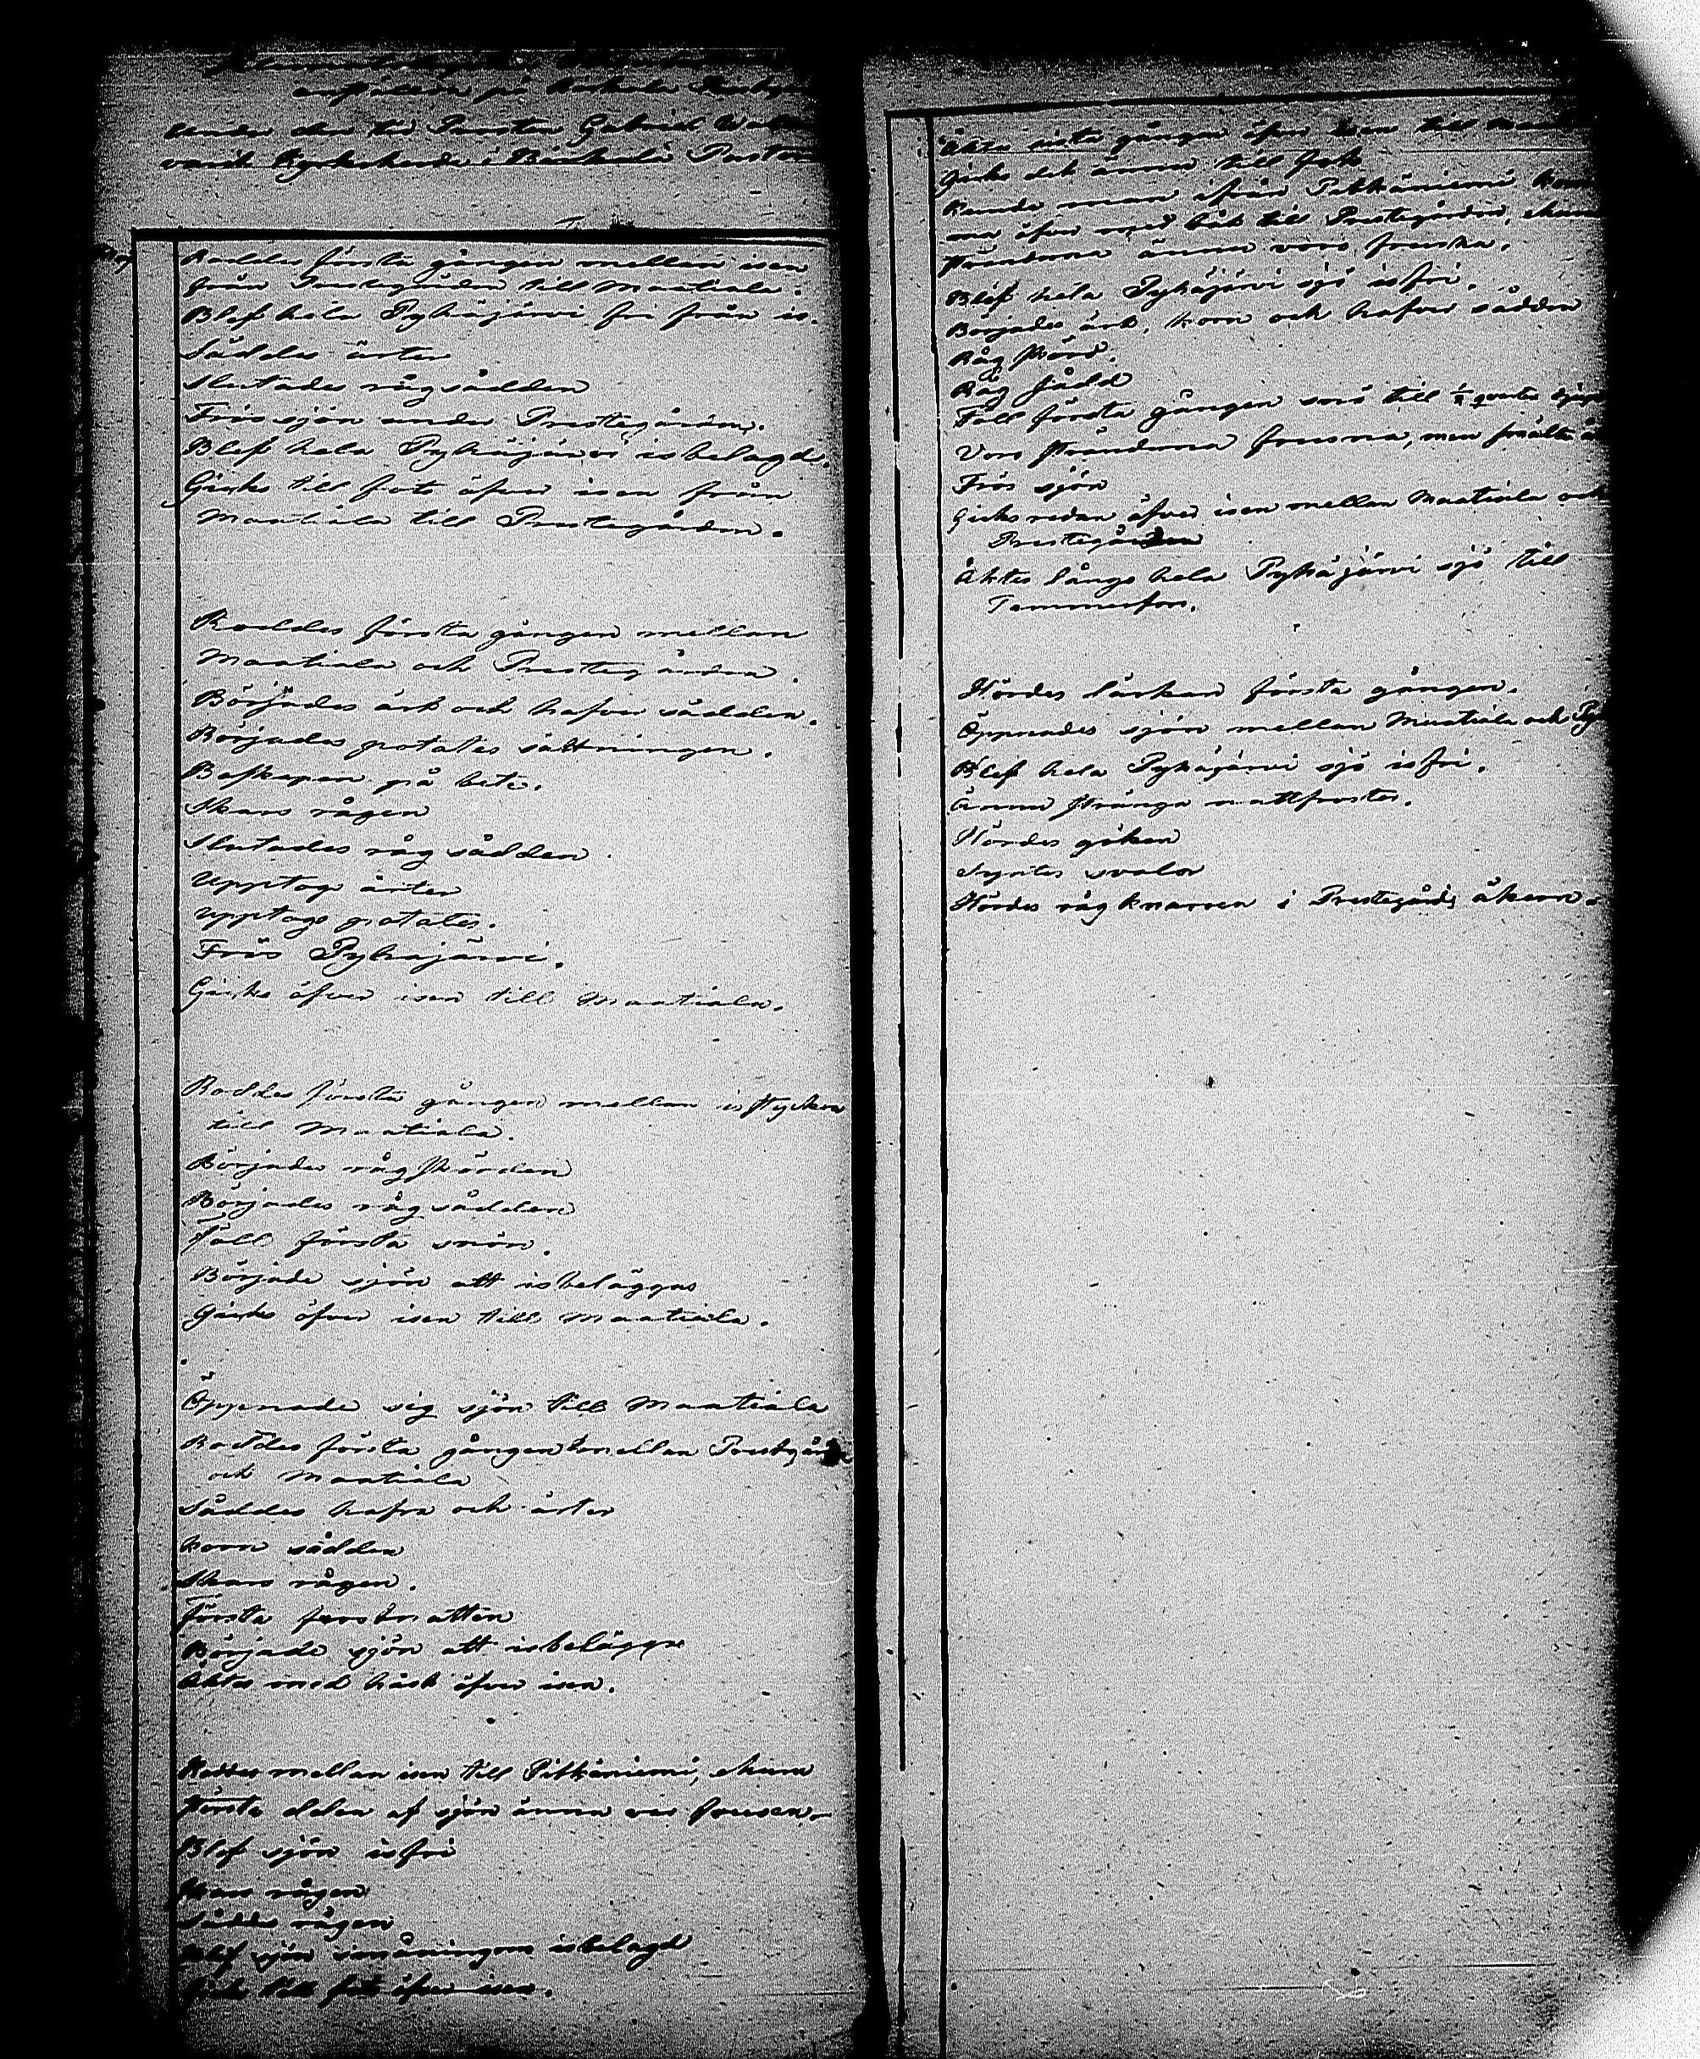 anställda på Birkala Prestg
Under den tid Prosten Gabriel Wal
varit Kyrkoherde i Birkala Pastor
Roddes första gången mellan isen
från Prestegården till Maatiala.
Blef hela Pyhäjärvi fri från is.
Såddes ärter
Slutades rågsådden
Frös sjön under Prestegården.
Blef hela Pyhäjärvi isbelagd.
Gicks till fots öfver isen från
Maatiala till Prestegården.
Roddes första gången mellan
Maatiala och Prestegården.
Börjades ärt och hafver sådden.
Börjades potates sättningen.
Boskapen på bete.
Skars rågen
Slutades råg sådden.
Upptogs ärter
Upptogs potates.
Frös Pyhäjärvi.
Gicks öfver isen till Maatiala.
Roddes första gången mellan isstycken
till Maatiala.
Började rågskörden
Börjades rågsådden
Föll första snön.
Började sjön att isbeläggas
Gicks öfver isen till Maatiala.
Öppnade sig sjön till Maatiala
Roddes första gången mellan Prestegården
och Maatiala
Såddes hafra och ärter
Korn sådden
Skars rågen.
Första frostnatten
Började sjön att isbelägga
Åktes med häst öfver isen.
Roddes mellan isen till Pitkäniemi, ehuru
största delen af sjön ännu var frusen.
Blef sjön isfri
Skars rågen
Sådde rågen
Blef sjön småningom isbelagd
Gicks till fots öfver isen.
Åktes sista gången öfver isen till Maa
Gicks det ännu till fots
Kunde man ifrån Pitkäniemi kom
ma öfver med båt till Prestegården, ehuru
stränderna ännu voro frusna.
Blef hela Pyhäjärvi sjö isfri.
Börjades ärt, korn och hafver sådden
Råg skörd.
Råg sådd
Föll första gången snö till 1/4 qvarter djup
Voro stränderna frusna, men
Frös sjön
Gicks redan öfver isen mellan Maatiala och
Prestegården
Åktes långs hela Pyhäjärvi sjö till
Tammerfors.
Hördes lärkan första gången.
Öppnades sjön mellan Maatiala och
Blef hela Pyhäjärvi sjö isfri.
Ännu stränga nattfroster.
Hördes göken
Syntes svalor
Hördes rågknarren i Prestegårds åkern